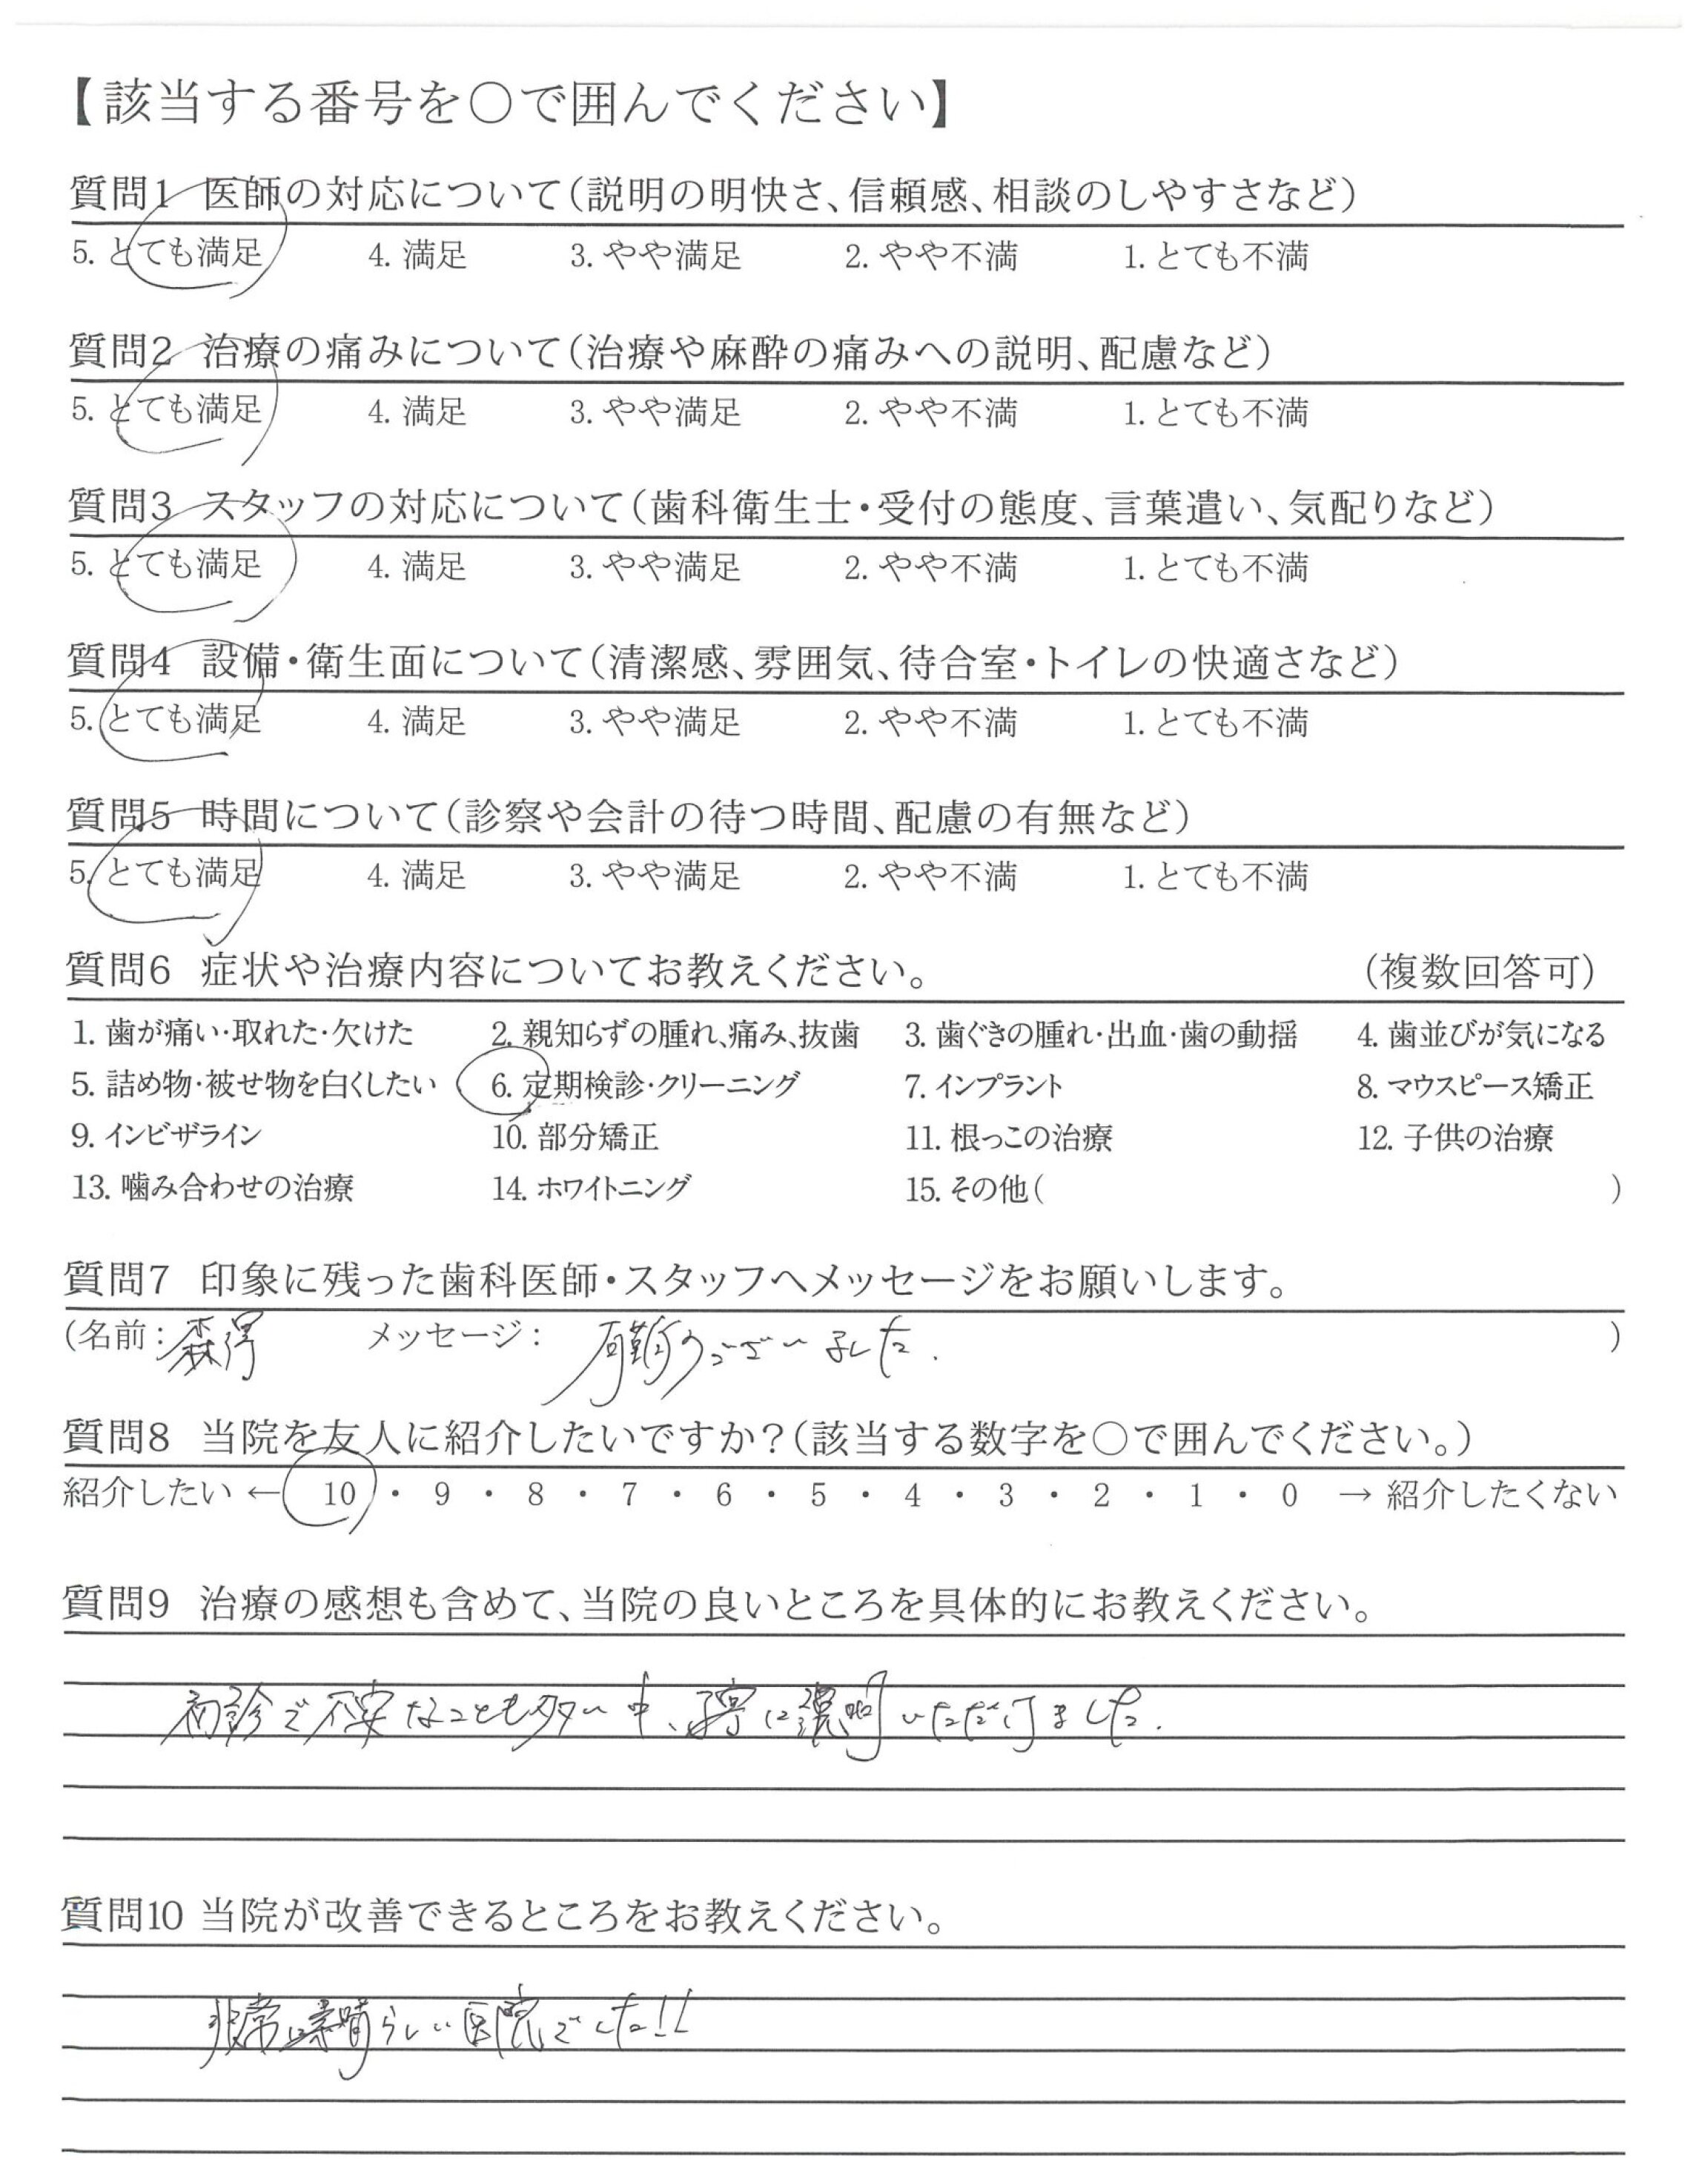 【該当する番号を○で囲んでください】
質問1 医師の対応について(説明の明快さ、信頼感、相談のしやすさなど)
5. とても満足 4. 満足 3. やや満足 2. やや不満 1. とても不満
質問2 治療の痛みについて(治療や麻酔の痛みへの説明、配慮など)
5. とても満足 4. 満足 3. やや満足 2. やや不満 1. とても不満
質問3 スタッフの対応について(歯科衛生士・受付の態度、言葉遣い、気配りなど)
5. とても満足 4. 満足 3. やや満足 2. やや不満 1. とても不満
質問4 設備・衛生面について(清潔感、雰囲気、待合室・トイレの快適さなど)
5. とても満足 4. 満足 3. やや満足 2. やや不満 1. とても不満
質問5 時間について(診察や会計の待つ時間、配慮の有無など)
5. とても満足 4. 満足 3. やや満足 2. やや不満 1. とても不満
質問6 症状や治療内容についてお教えください。 (複数回答可)
1. 歯が痛い・取れた・欠けた 2. 親知らずの腫れ、痛み、抜歯 3. 歯ぐきの腫れ・出血・歯の動揺 4. 歯並びが気になる
5. 詰め物・被せ物を白くしたい 6. 定期検診・クリーニング 7. インプラント 8. マウスピース矯正
9. インビザライン 10. 部分矯正 11. 根っこの治療 12. 子供の治療
13. 噛み合わせの治療 14. ホワイトニング 15. その他( )
質問7 印象に残った歯科医師・スタッフへメッセージをお願いします。
(名前: メッセージ: 有難うございました. )
質問8 当院を友人に紹介したいですか?(該当する数字を○で囲んでください。)
紹介したい ← 10 ・ 9 ・ 8 ・ 7 ・ 6 ・ 5 ・ 4 ・ 3 ・ 2 ・ 1 ・ 0 → 紹介したくない
質問9 治療の感想も含めて、当院の良いところを具体的にお教えください。
初診で不安なことも多い中、丁寧に説明いただけました.
質問10 当院が改善できるところをお教えください。
非常に素晴らしい医院でした!!